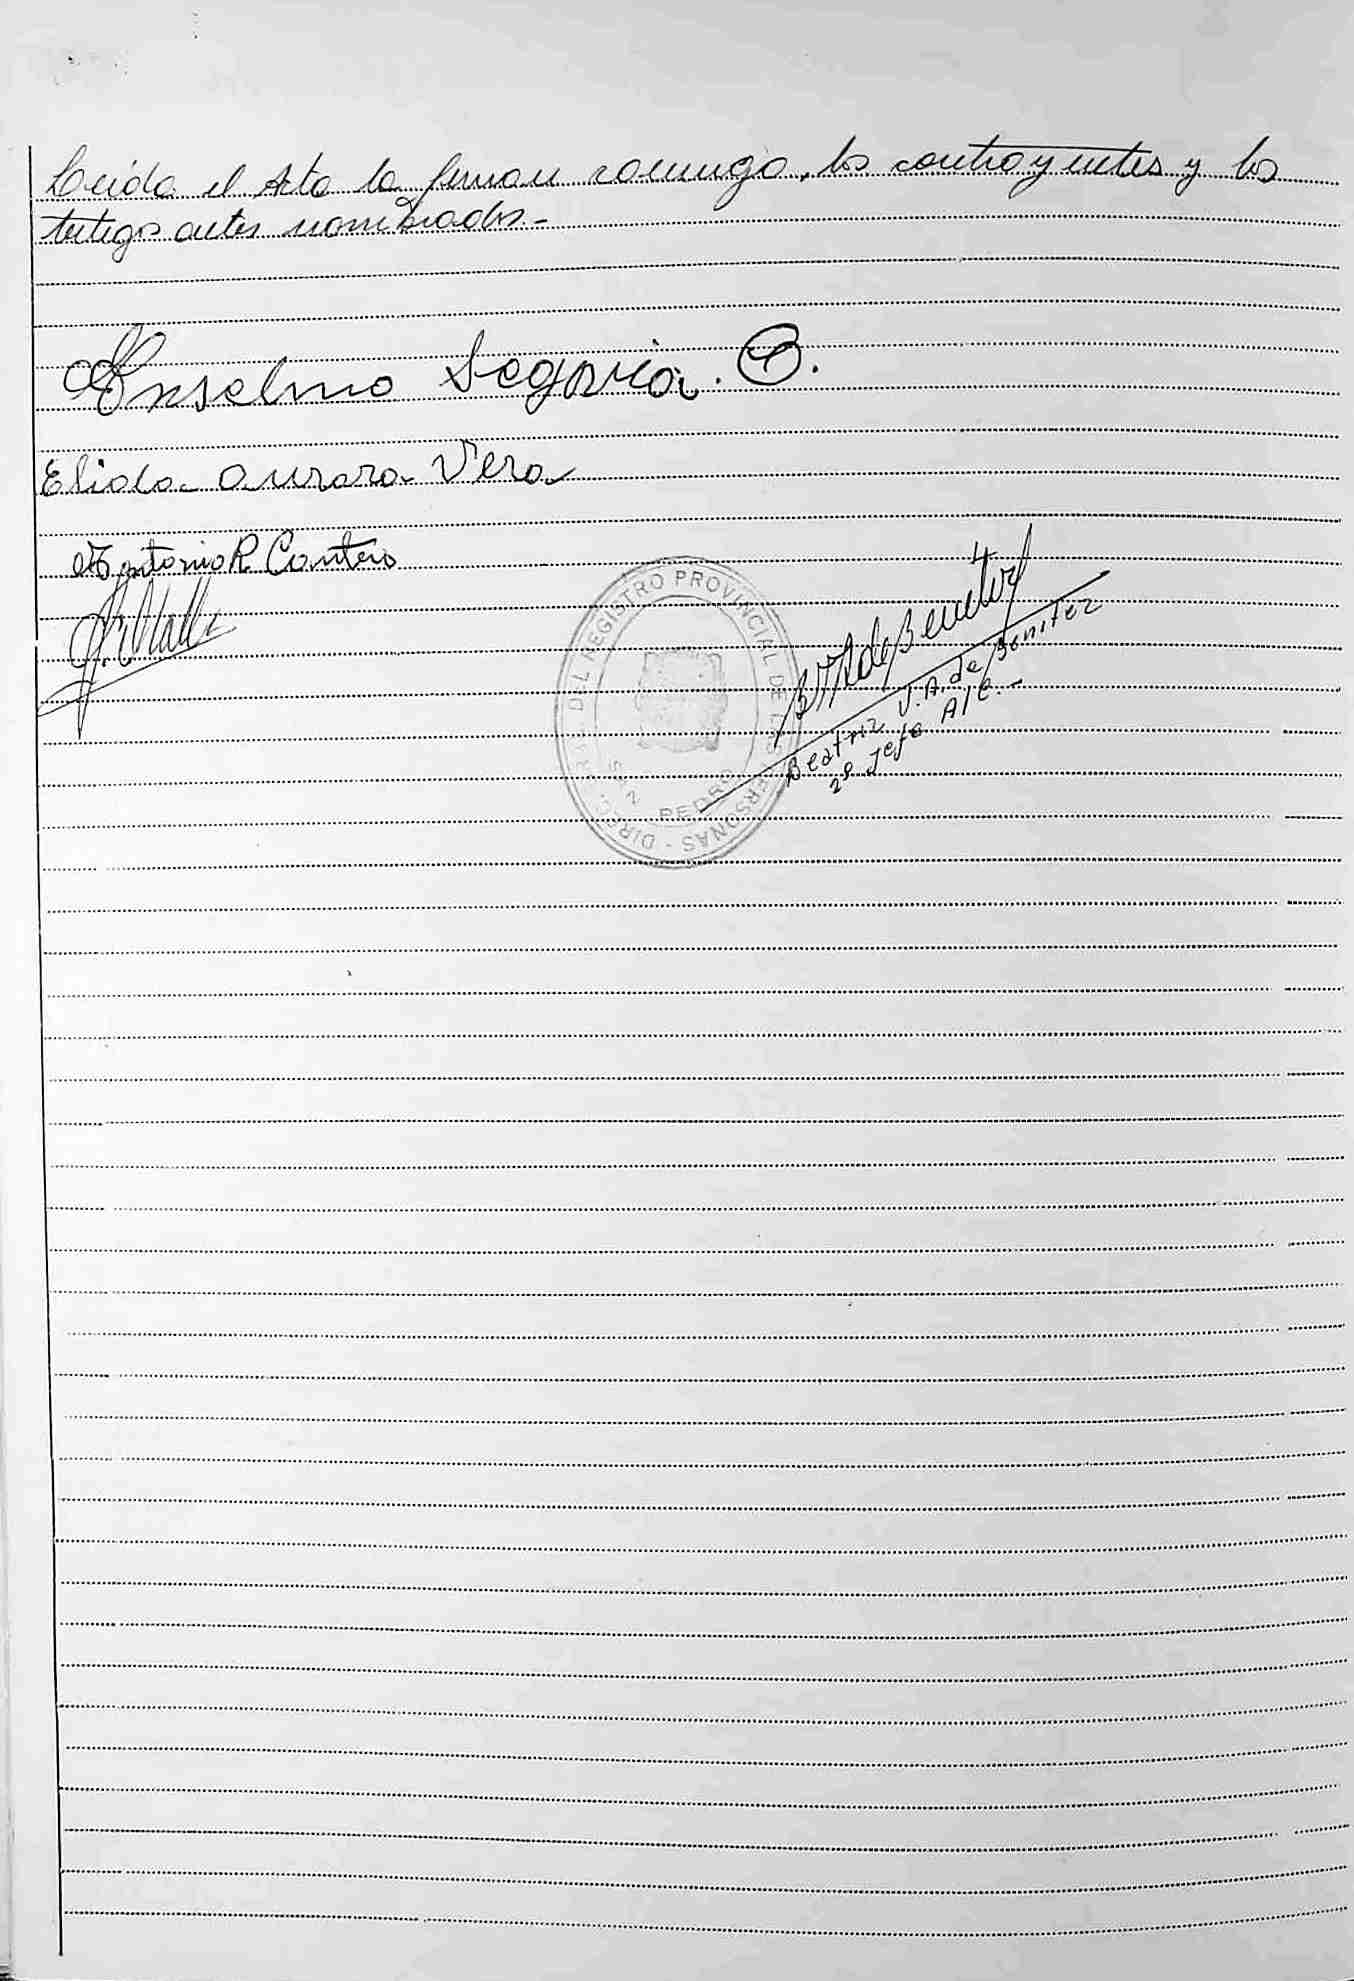 Leída el Acta la firman conmigo, los contrayentes y los
testigos antes nombrados.-
Anselmo Segovia. B.
Elida aurora Vera
Antonio R Contero
DIREC. GRAL. DEL REGISTRO PROVINCIAL DE LAS PERSONAS -
SAN PEDRO
Beatriz J. A. de Benitez
2º Jefe A/C.-